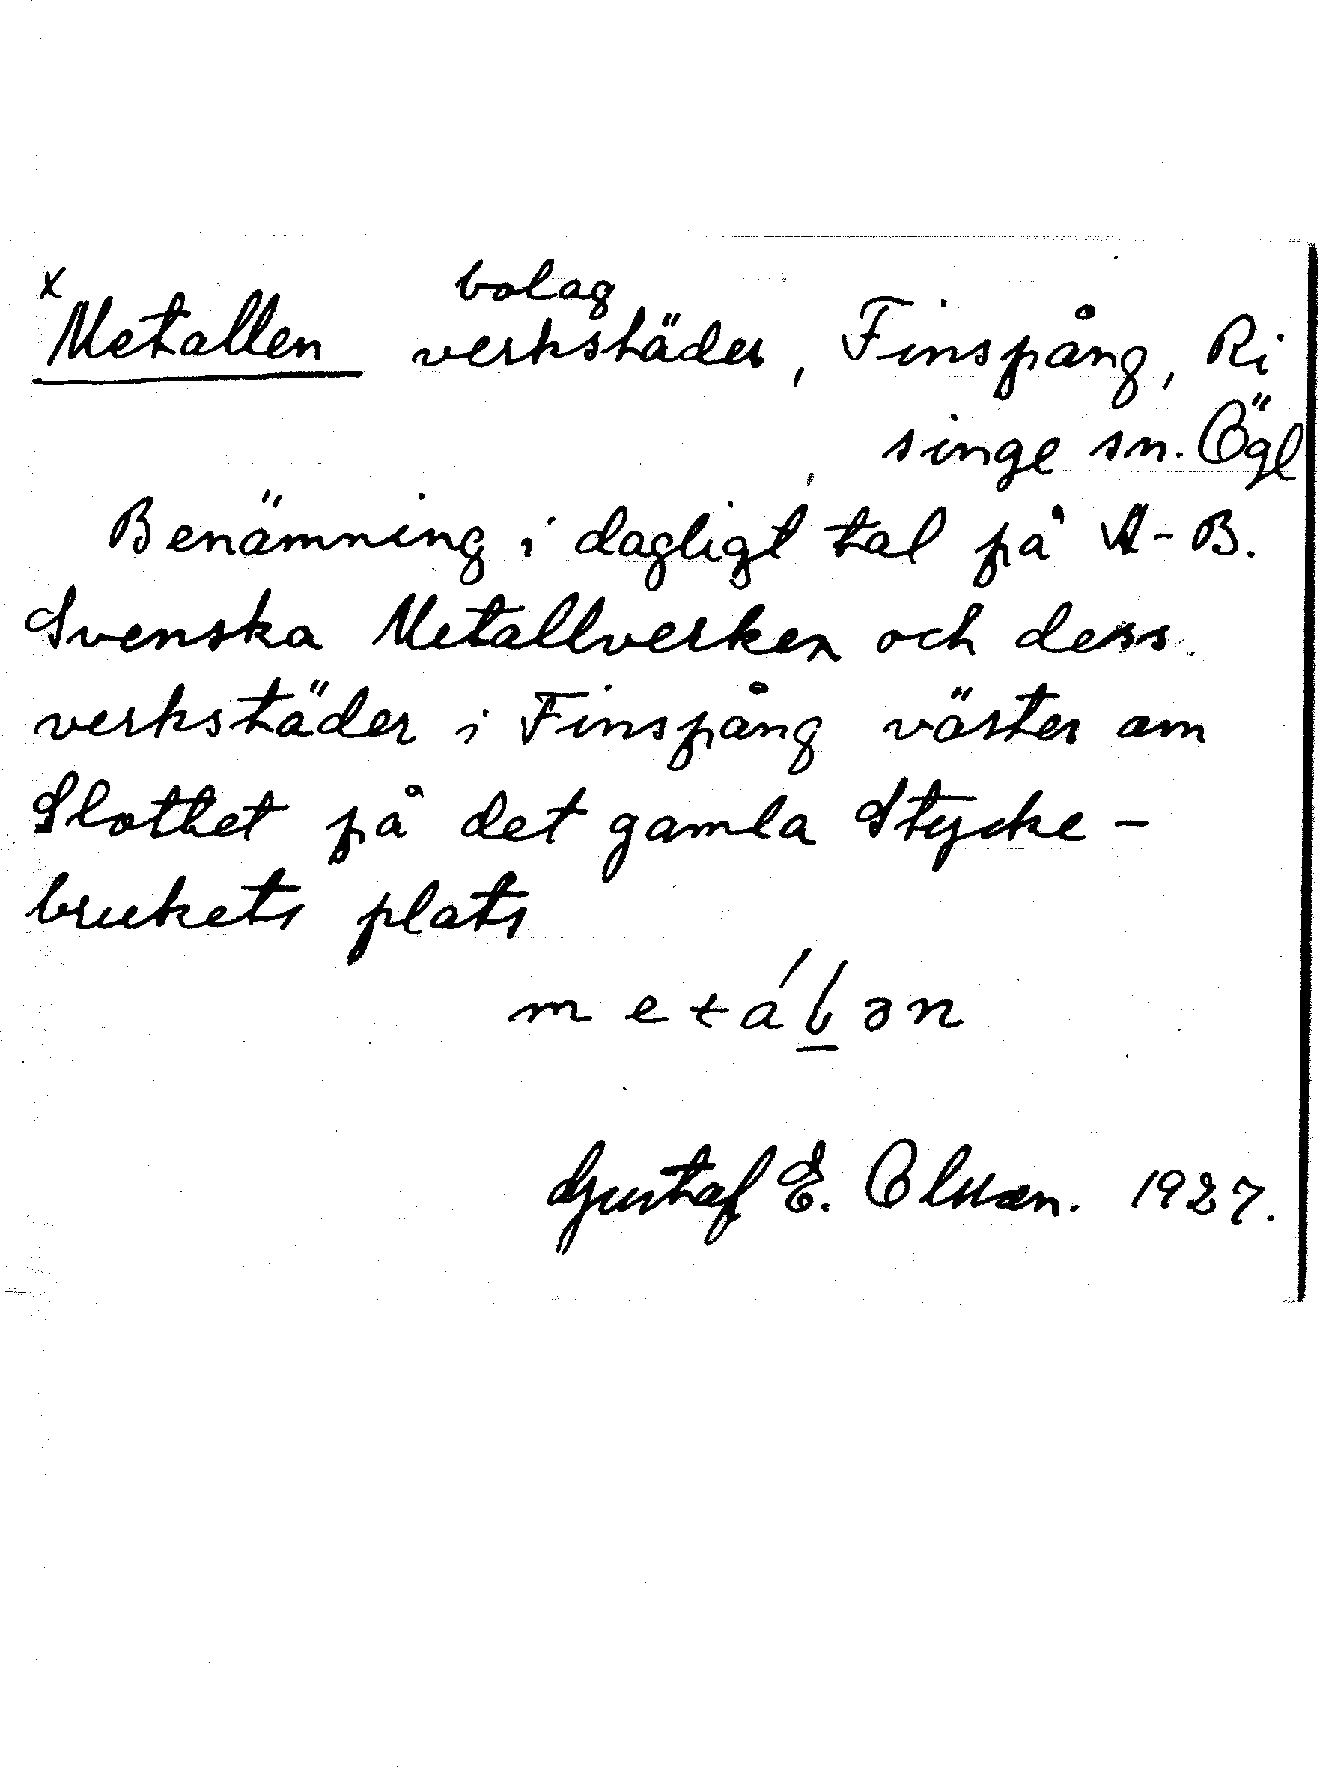 x
bolag
Metallen verkstäder, Finspång, Ri
singe sn. Ögl
Benämning i dagligt tal på A-B.
Svenska Metallverken och dess
verkstäder i Finspång väster om
Slottet på det gamla Stycke-
brukets plats
metálən
Gustaf E. Olsson. 1927.